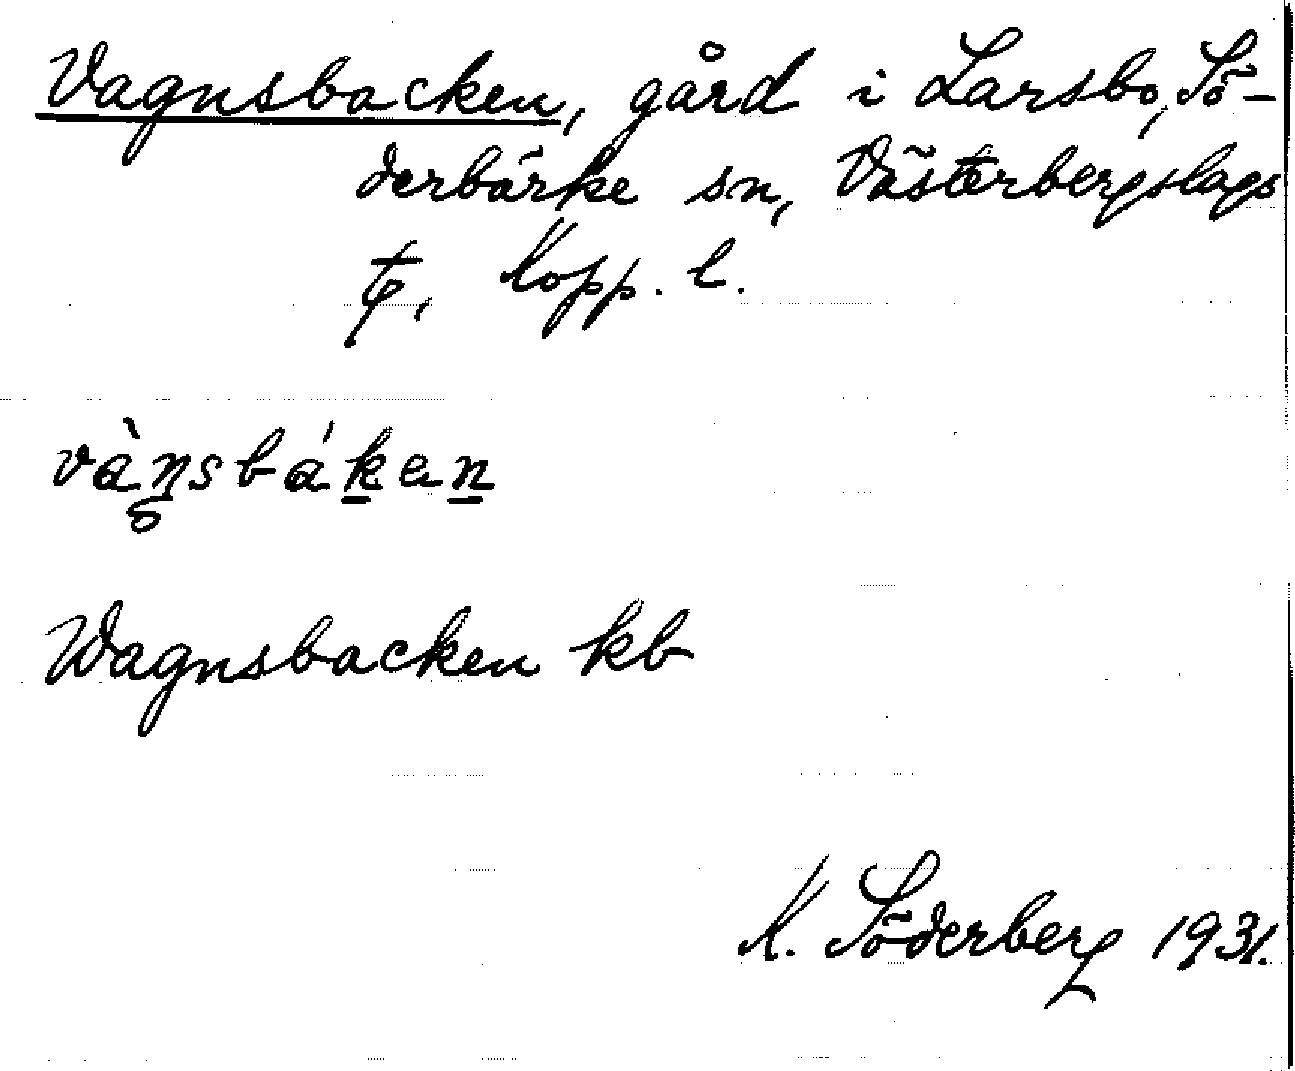 Vagnsbacken, gård i Larsbo, Sö-
derbärke sn, Västerbergslags
Kopp. l.
vànsbákan
Wagnsbacken kb
K. Söderberg 1931.